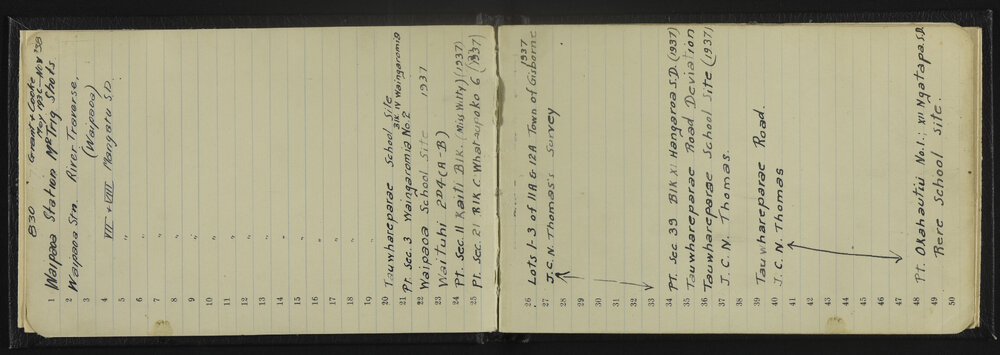 830 Grant & Cooke
May 1936 - Nov '38
1 Waipaoa Station Mr Trig Shots
2 Waipaoa Stn. River Traverse,
3 (Waipaoa)
4 VII + VIII Mangatu S.D.
5 "
6 "
7 "
8 "
9 "
10 "
11 "
12 "
13 "
14 "
15 "
16 "
17 "
18 "
19 "
20 Tauwhareparae School Site
Blk IV Waingaromia
21 Pt. Sec. 3 Waingaromia No. 2
22 Waipaoa School Site 1937
23 Waituhi 2D4 (A-B)
24 Pt. Sec. 11 Kaiti Blk. (Miss Willy) (1937)
25 Pt. Sec. 21 Blk C Whataupoko 6 (1937)
1937
26 Lots 1-3 of 11A & 12A Town of Gisborne
27 J.C.N. Thomas's Survey
28
29
30
31
32
33
34 PT. Sec 33 Blk XI Hangaroa S.D. (1937)
35 Tauwhareparae Road Deviation
36 Tauwhareparae School Site (1937)
37 J.C.N. Thomas.
38
39 Tauwhareparae Road.
40 J.C.N. Thomas
41
42
43
44
45
46
47
48 Pt. Okahuatiu No.1.; XII Ngatapa S.D.
49 Rere School site.
50